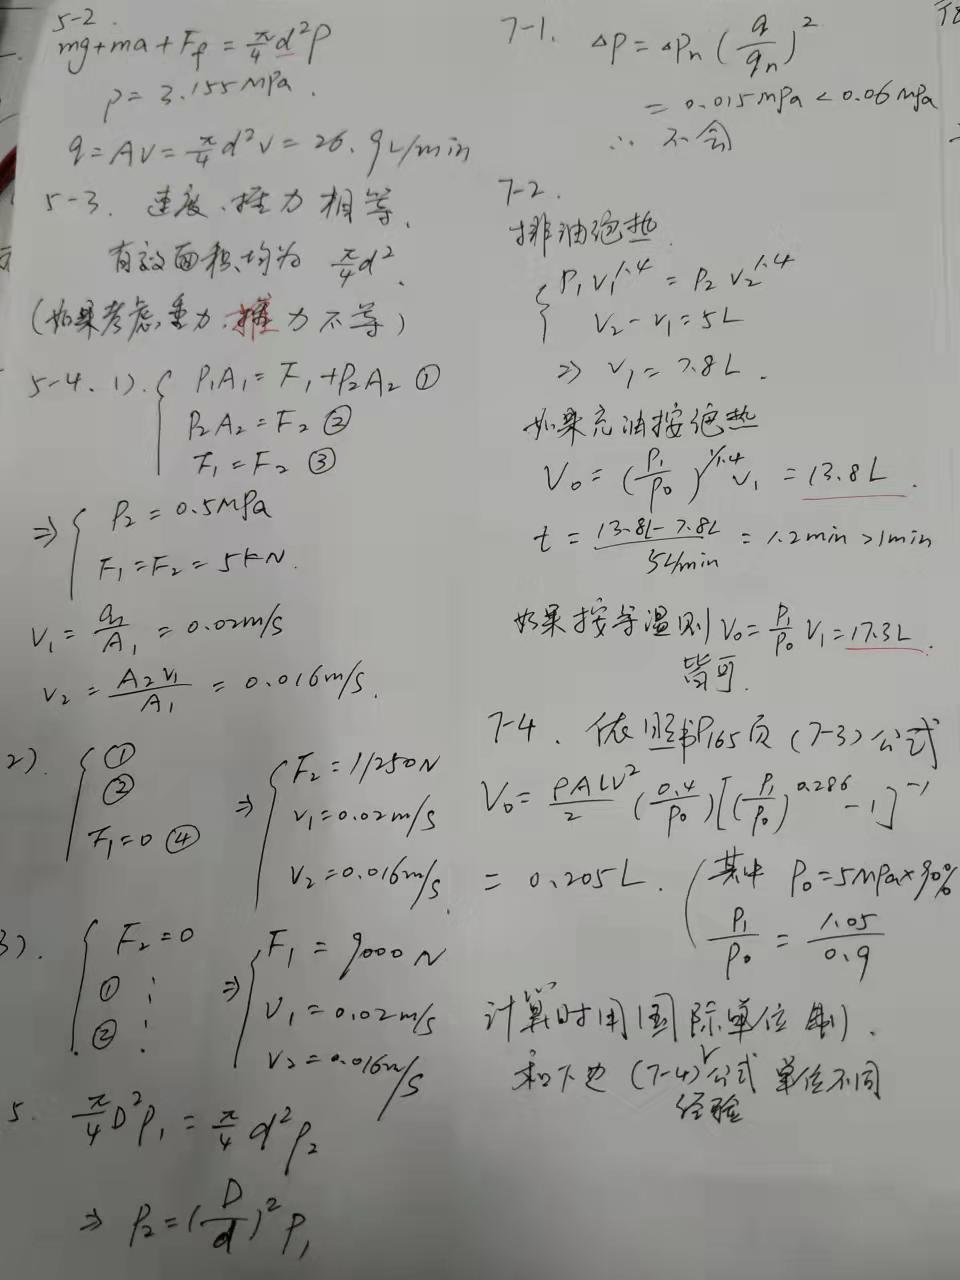 5-2.
mg+ma+Ff = π/4 d²P
P = 3.155MPa.
q=AV= π/4 d²V = 26.9L/min
5-3. 速度、推力相等.
有效面积均为 π/4 d².
(如果考虑重力,推力不等)
5-4. 1). { P₁A₁ = F₁+P₂A₂ ①
P₂A₂ = F₂ ②
F₁ = F₂ ③
⇒ { P₂ = 0.5MPa
F₁ = F₂ = 5kN.
V₁ = q₁/A₁ = 0.02m/s
V₂ = A₂V₁/A₁ = 0.016m/s.
2). { ①
②
F₁=0 ④
⇒ { F₂ = 11250N
V₁ = 0.02m/s
V₂ = 0.016m/s.
3). { F₂ = 0
① ⋮
② ⋮
⇒ { F₁ = 9000N
V₁ = 0.02m/s
V₂ = 0.016m/s
5. π/4 D²P₁ = π/4 d²P₂
⇒ P₂ = (D/d)² P₁
7-1. ΔP = ΔPn (q/qn)²
= 0.015MPa < 0.06MPa
∴ 不会
7-2.
排油绝热
{ P₁V₁^1.4 = P₂V₂^1.4
V₂ - V₁ = 5L
⇒ V₁ = 7.8L.
如果充油按绝热
V₀ = (P₁/P₀)^1/1.4 V₁ = 13.8L.
t = (13.8L-7.8L)/(5L/min) = 1.2min > 1min
如果按等温则 V₀ = P₁/P₀ V₁ = 17.3L.
皆可.
7-4. 依照书P165页 (7-3)公式
V₀ = ρALV²/2 (0.4/P₀)[(P₁/P₀)^0.286 - 1]^-1
= 0.205L. (其中 P₀ = 5MPa×90%
P₁/P₀ = 1.05/0.9
计算时用国际单位制).
和下边 (7-4)经验公式 单位不同